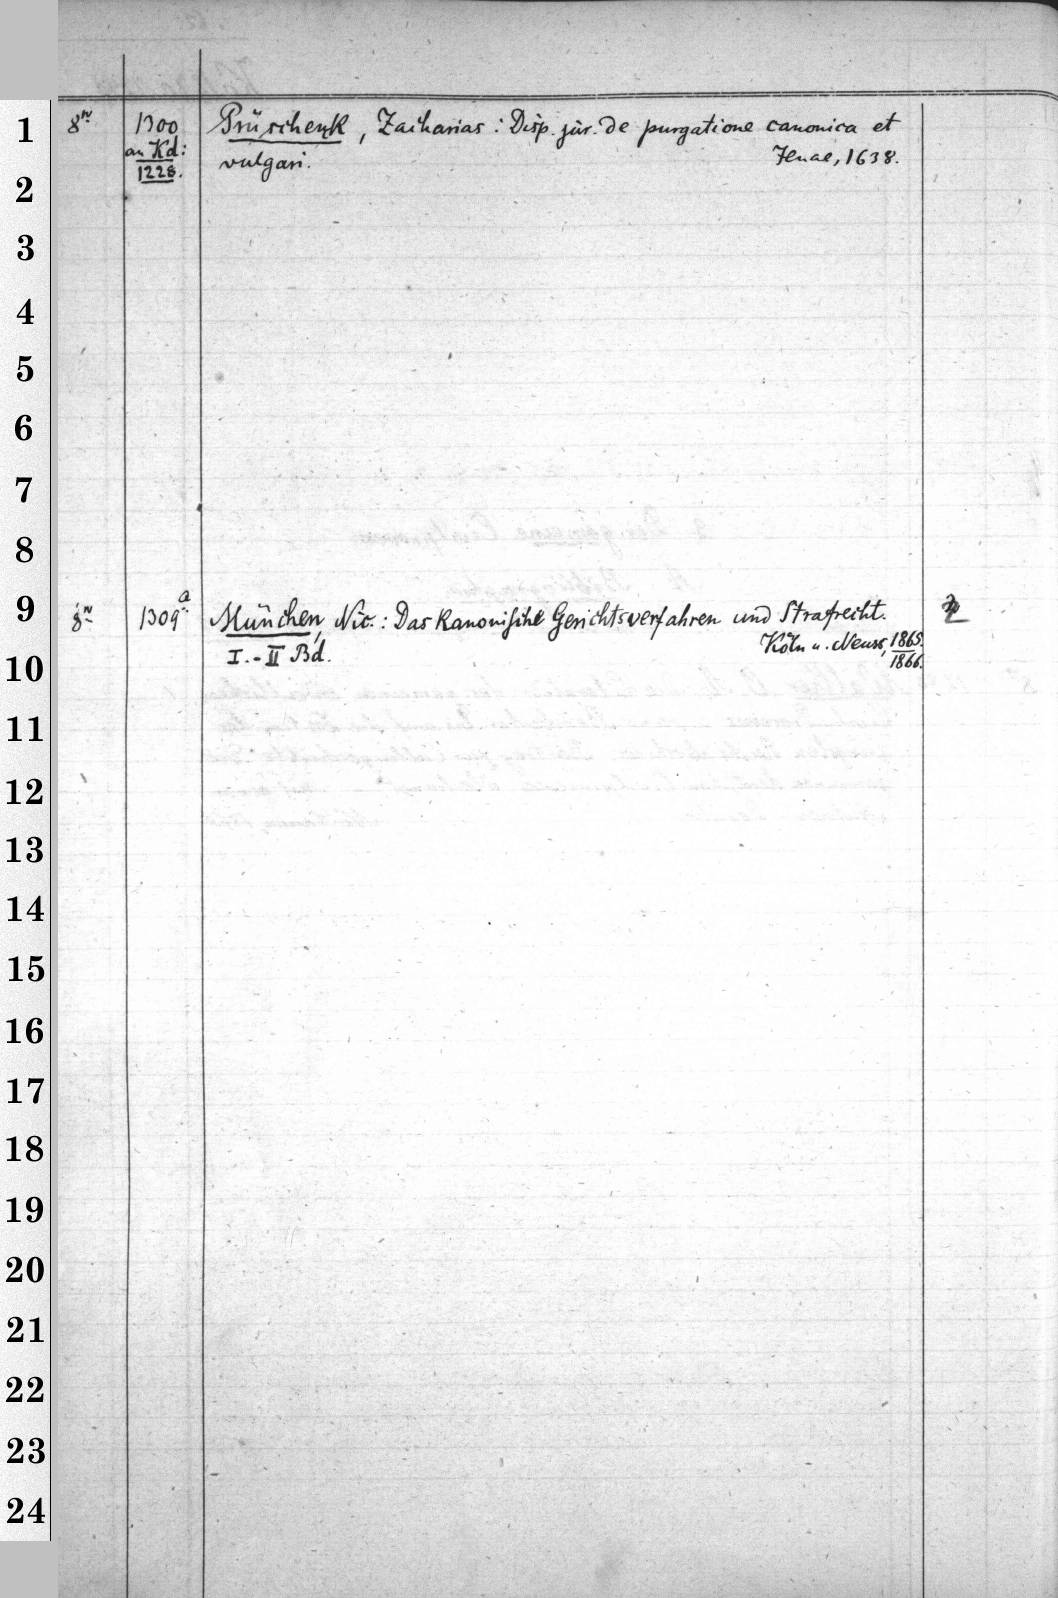 1 8º 1300 Prüschenk, Zacharias: Disp. jur. de purgatione canonica et
an Kd: vulgari. Jenae, 1638.
2 1228.
3
4
5
6
7
8
9 8º 1309a München, Nic.: Das kanonische Gerichtsverfahren und Strafrecht. 2
Köln u. Neuss, 1865.
10 I.-II Bd. 1866.
11
12
13
14
15
16
17
18
19
20
21
22
23
24